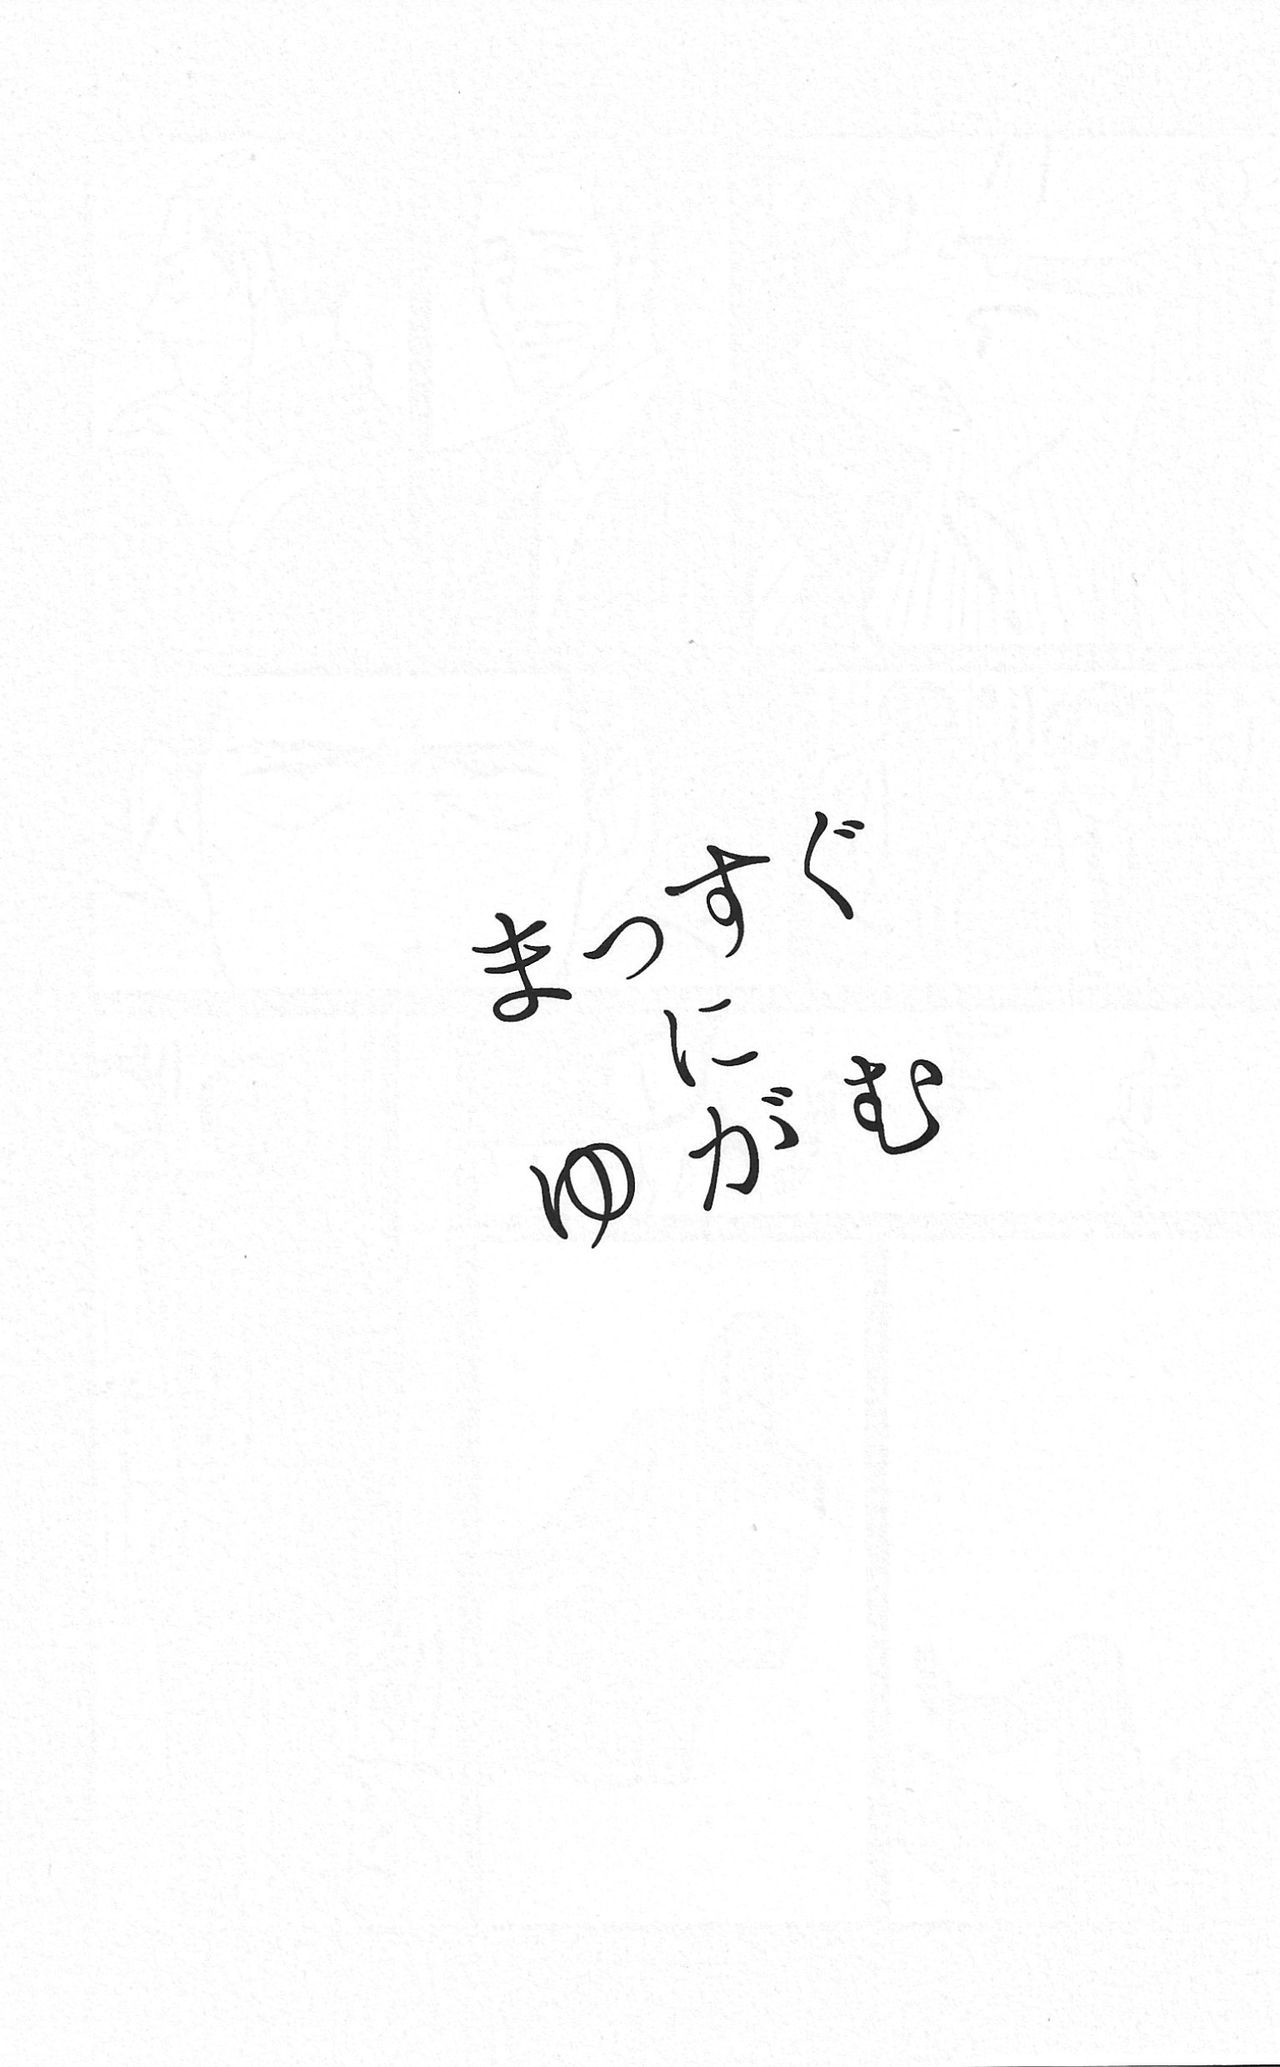 まっすぐ
に
ゆがむ